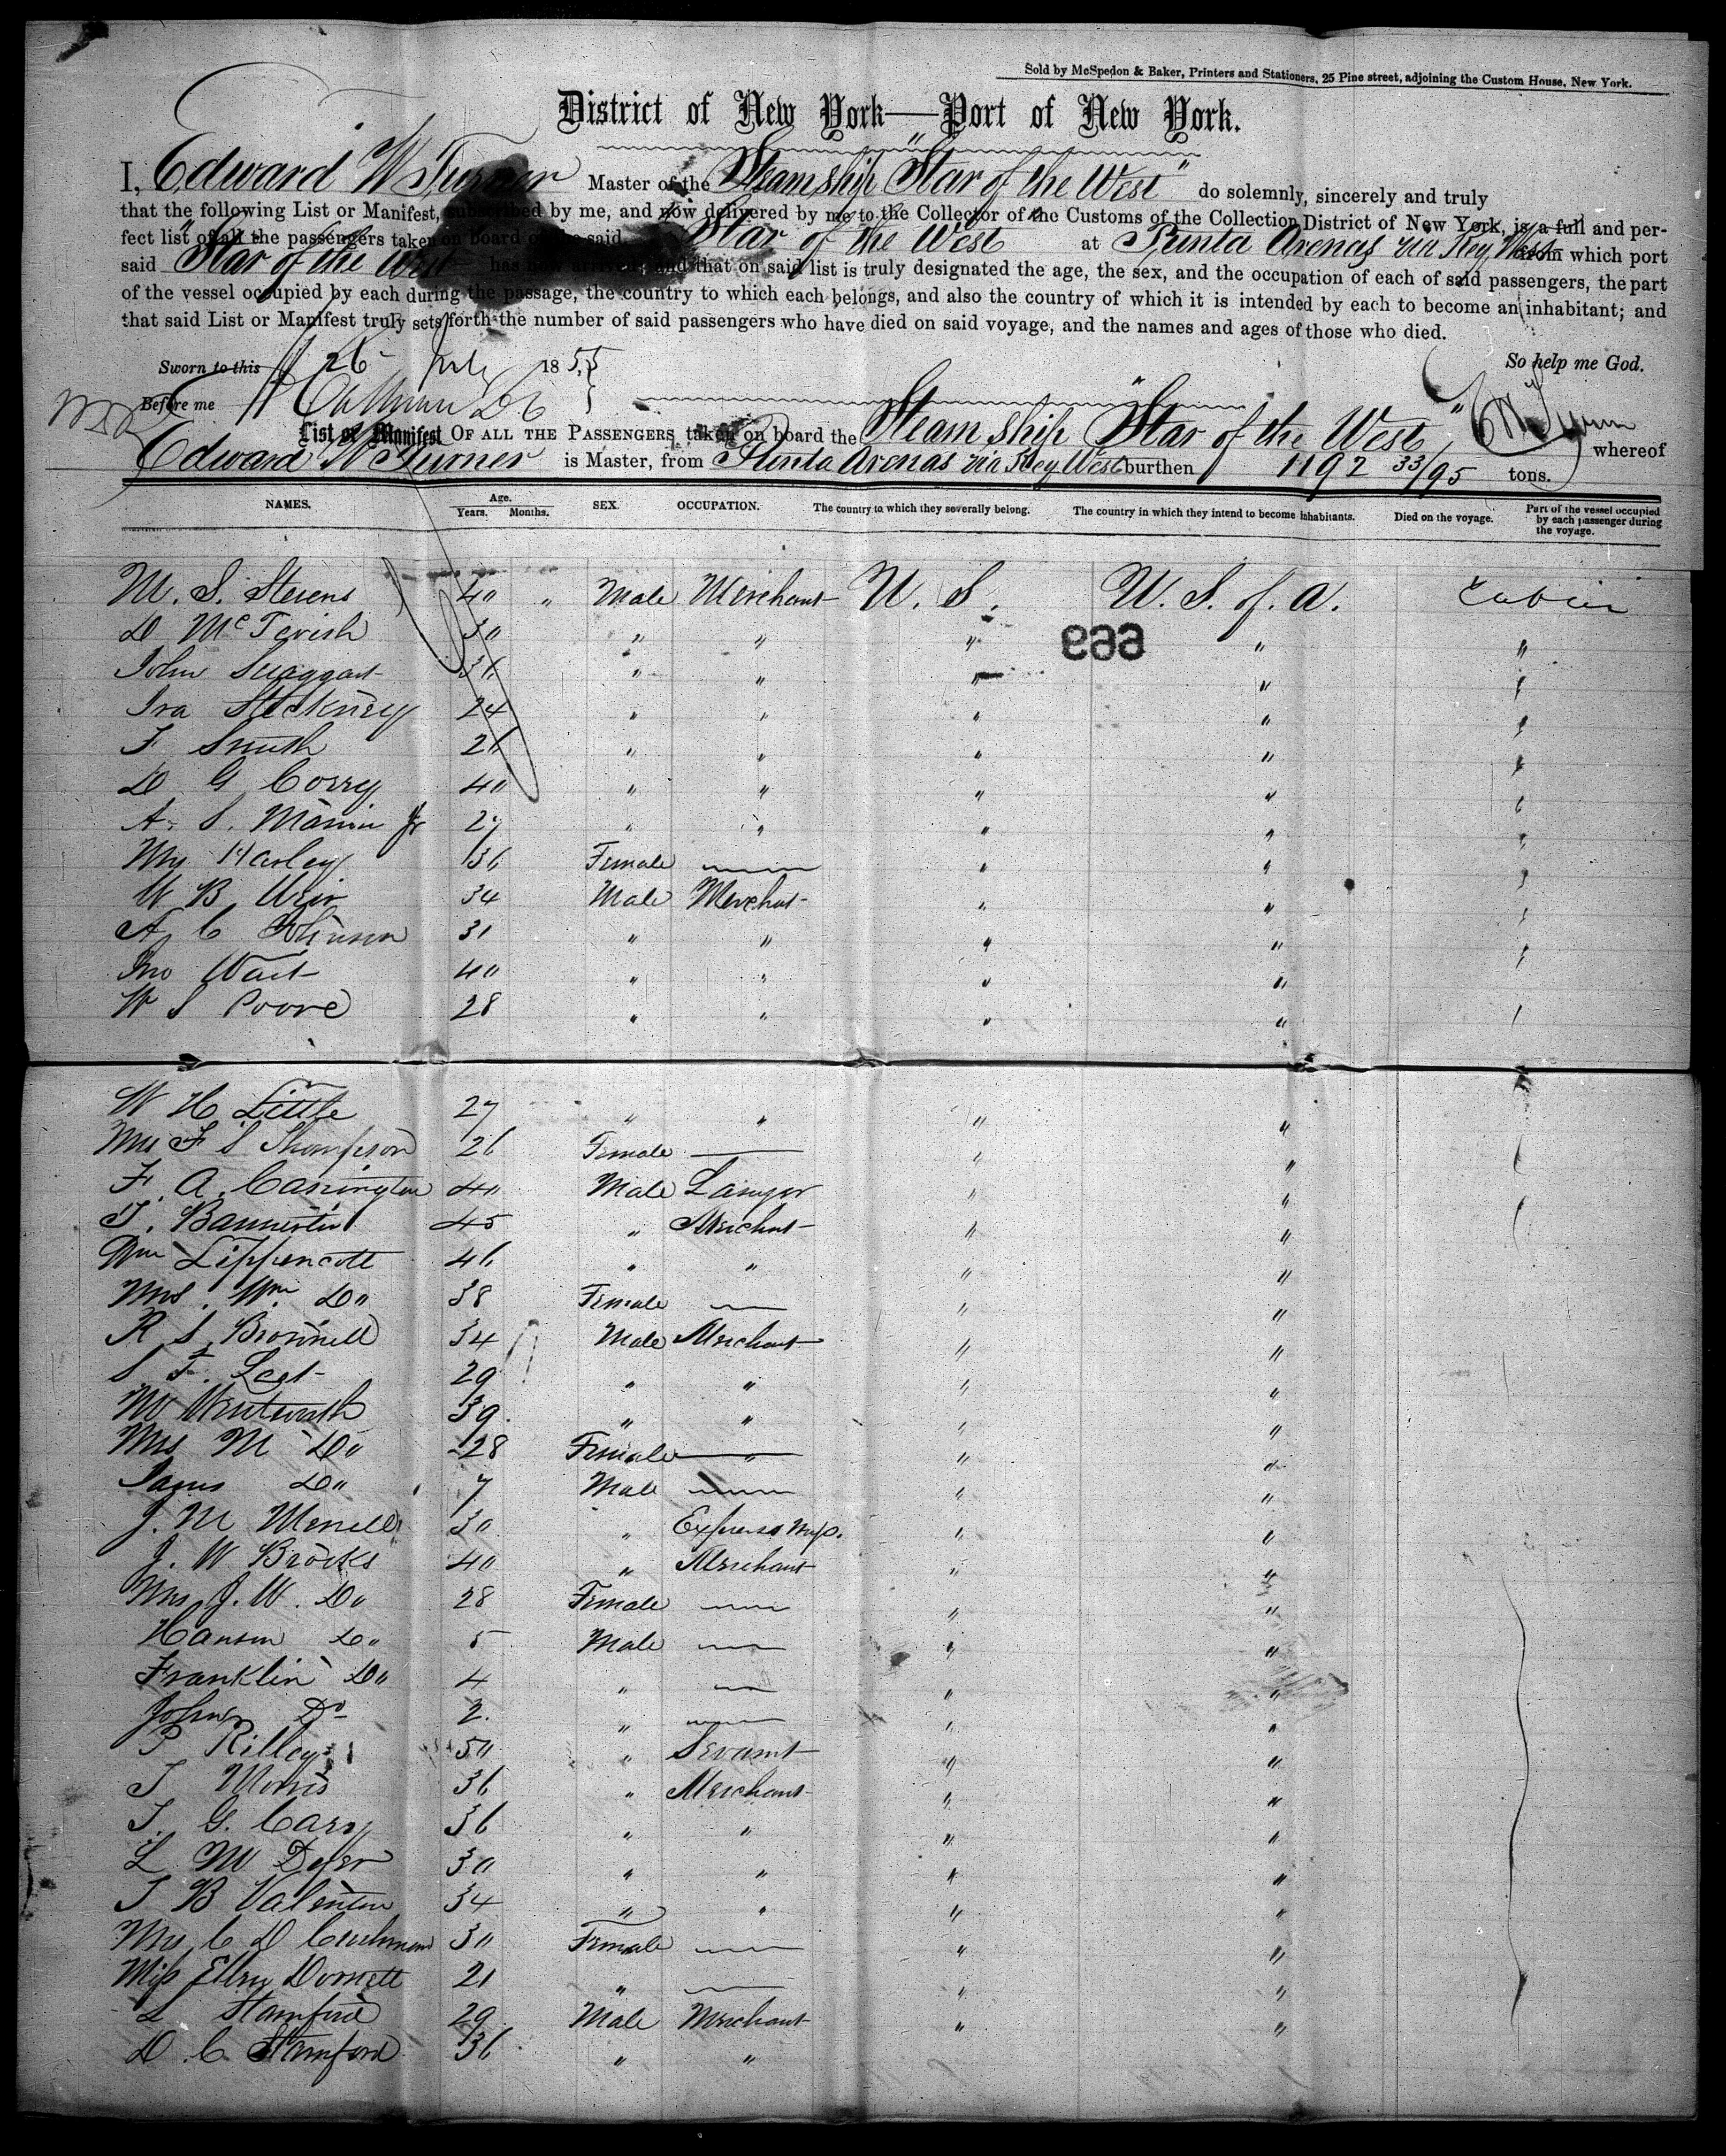 Sold by McSpedon & Baker, Printers and Stationers, 25 Pine street, adjoining the Custom House, New York.
District of New York—Port of New York.
I, Edward W Turner Master of the Steamship "Star of the West" do solemnly, sincerely and truly
that the following List or Manifest, subscribed by me, and now delivered by me to the Collector of the Customs of the Collection District of New York, is a full and per-
fect list of all the passengers taken on board of the said Star of the West at Punta Arenas via Key West from which port
said Star of the West has now arrived; and that on said list is truly designated the age, the sex, and the occupation of each of said passengers, the part
of the vessel occupied by each during the passage, the country to which each belongs, and also the country of which it is intended by each to become an inhabitant; and
that said List or Manifest truly sets forth the number of said passengers who have died on said voyage, and the names and ages of those who died.
Sworn to this 26 July 1855 So help me God.
Before me
List or Manifest OF ALL THE PASSENGERS taken on board the Steam Ship "Star of the West" whereof
Edward W Turner is Master, from Punta Arenas via Key West burthen 1192 33/95 tons.
NAMES. Age. Years. Months. SEX. OCCUPATION. The country to which they severally belong. The country in which they intend to become inhabitants. Died on the voyage. Part of the vessel occupied by each passenger during the voyage.
M. S. Stevens 40 " Male Merchant U. S. U. S. of. A. Cabin
D McTevish 30 " " " " "
699
John Swaggart 36 " " " "
Ira Stickney 24 " " " "
F Smith 26 " " " "
D G Corry 40 " " " "
A. S. Jr 27 " " " "
Harley 36 Female — " "
W B Weir 34 Male Merchat " "
A, C 31 " " " "
Jno Wait 40 " " " "
W S Poore 28 " " " "
W H Little 27 " " " "
Mrs F S Thompson 26 Female — " "
F. A. Carrington 40 Male Lawyer " "
T. Bannister 45 " Merchat " "
Wm Lippencott 46 " " " "
Mrs. Wm Do 38 Female — " "
R S Brownell 34 Male Merchant " "
S F. 29 " " " "
M Wentworth 39. " " " "
Mrs M Do 28 Female — " "
James Do 7 Male — " "
J. M Merrell 30 " Express " "
J. W Brooks 40 " Merchant " "
Mrs J. W. Do 28 Female — " "
Hanson Do 5 Male — " "
Franklin Do 4 " — " "
Do 2. " — " "
P Rilley 50 " Servant " "
T Morris 36 " Merchant " "
T. G. Cary 36 " " " "
L M 30 " " " "
T B Valentine 34 " " " "
Mrs C D Cushman 30 Female — " "
Miss Ellen Dornett 21 " — " "
L Stamford 29 Male Merchant " "
D. C. Stamford 36 " " " "